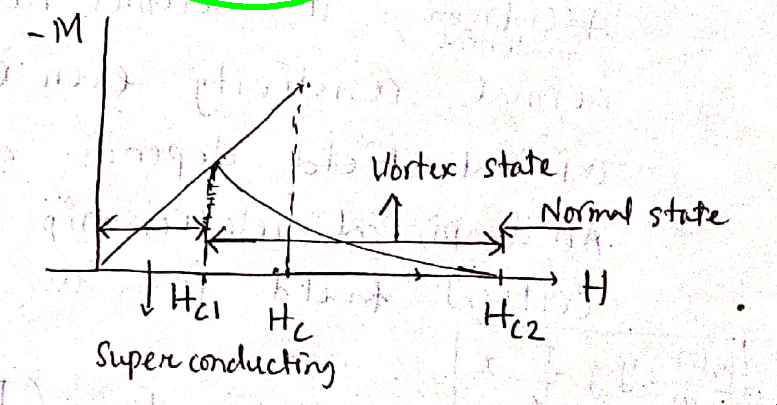 -M
Vortex state
Normal state
H
HC1
HC
HC2
Superconducting